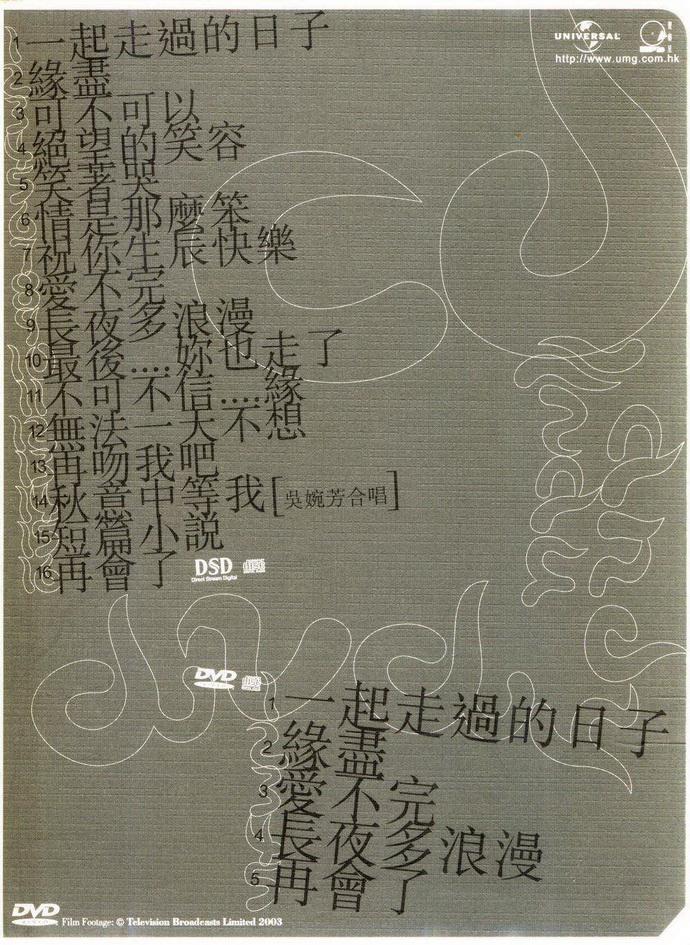 UNIVERSAL
http://www.umg.com.hk
1 一起走過的日子
2 緣盡
3 可不可以
4 絕望的笑容
5 笑著哭
6 情是那麼笨
7 祝你生辰快樂
8 愛不完
9 長夜多浪漫
10 最後....妳也走了
11 不可不信....緣
12 無法一天不想
13 再吻我吧
14 秋意中等我[吳婉芳合唱]
15 短篇小說
16 再會了
DSD
Direct Stream Digital
DVD
1 一起走過的日子
2 緣盡
3 愛不完
4 長夜多浪漫
5 再會了
DVD
: Film Footage: © Television Broadcasts Limited 2003